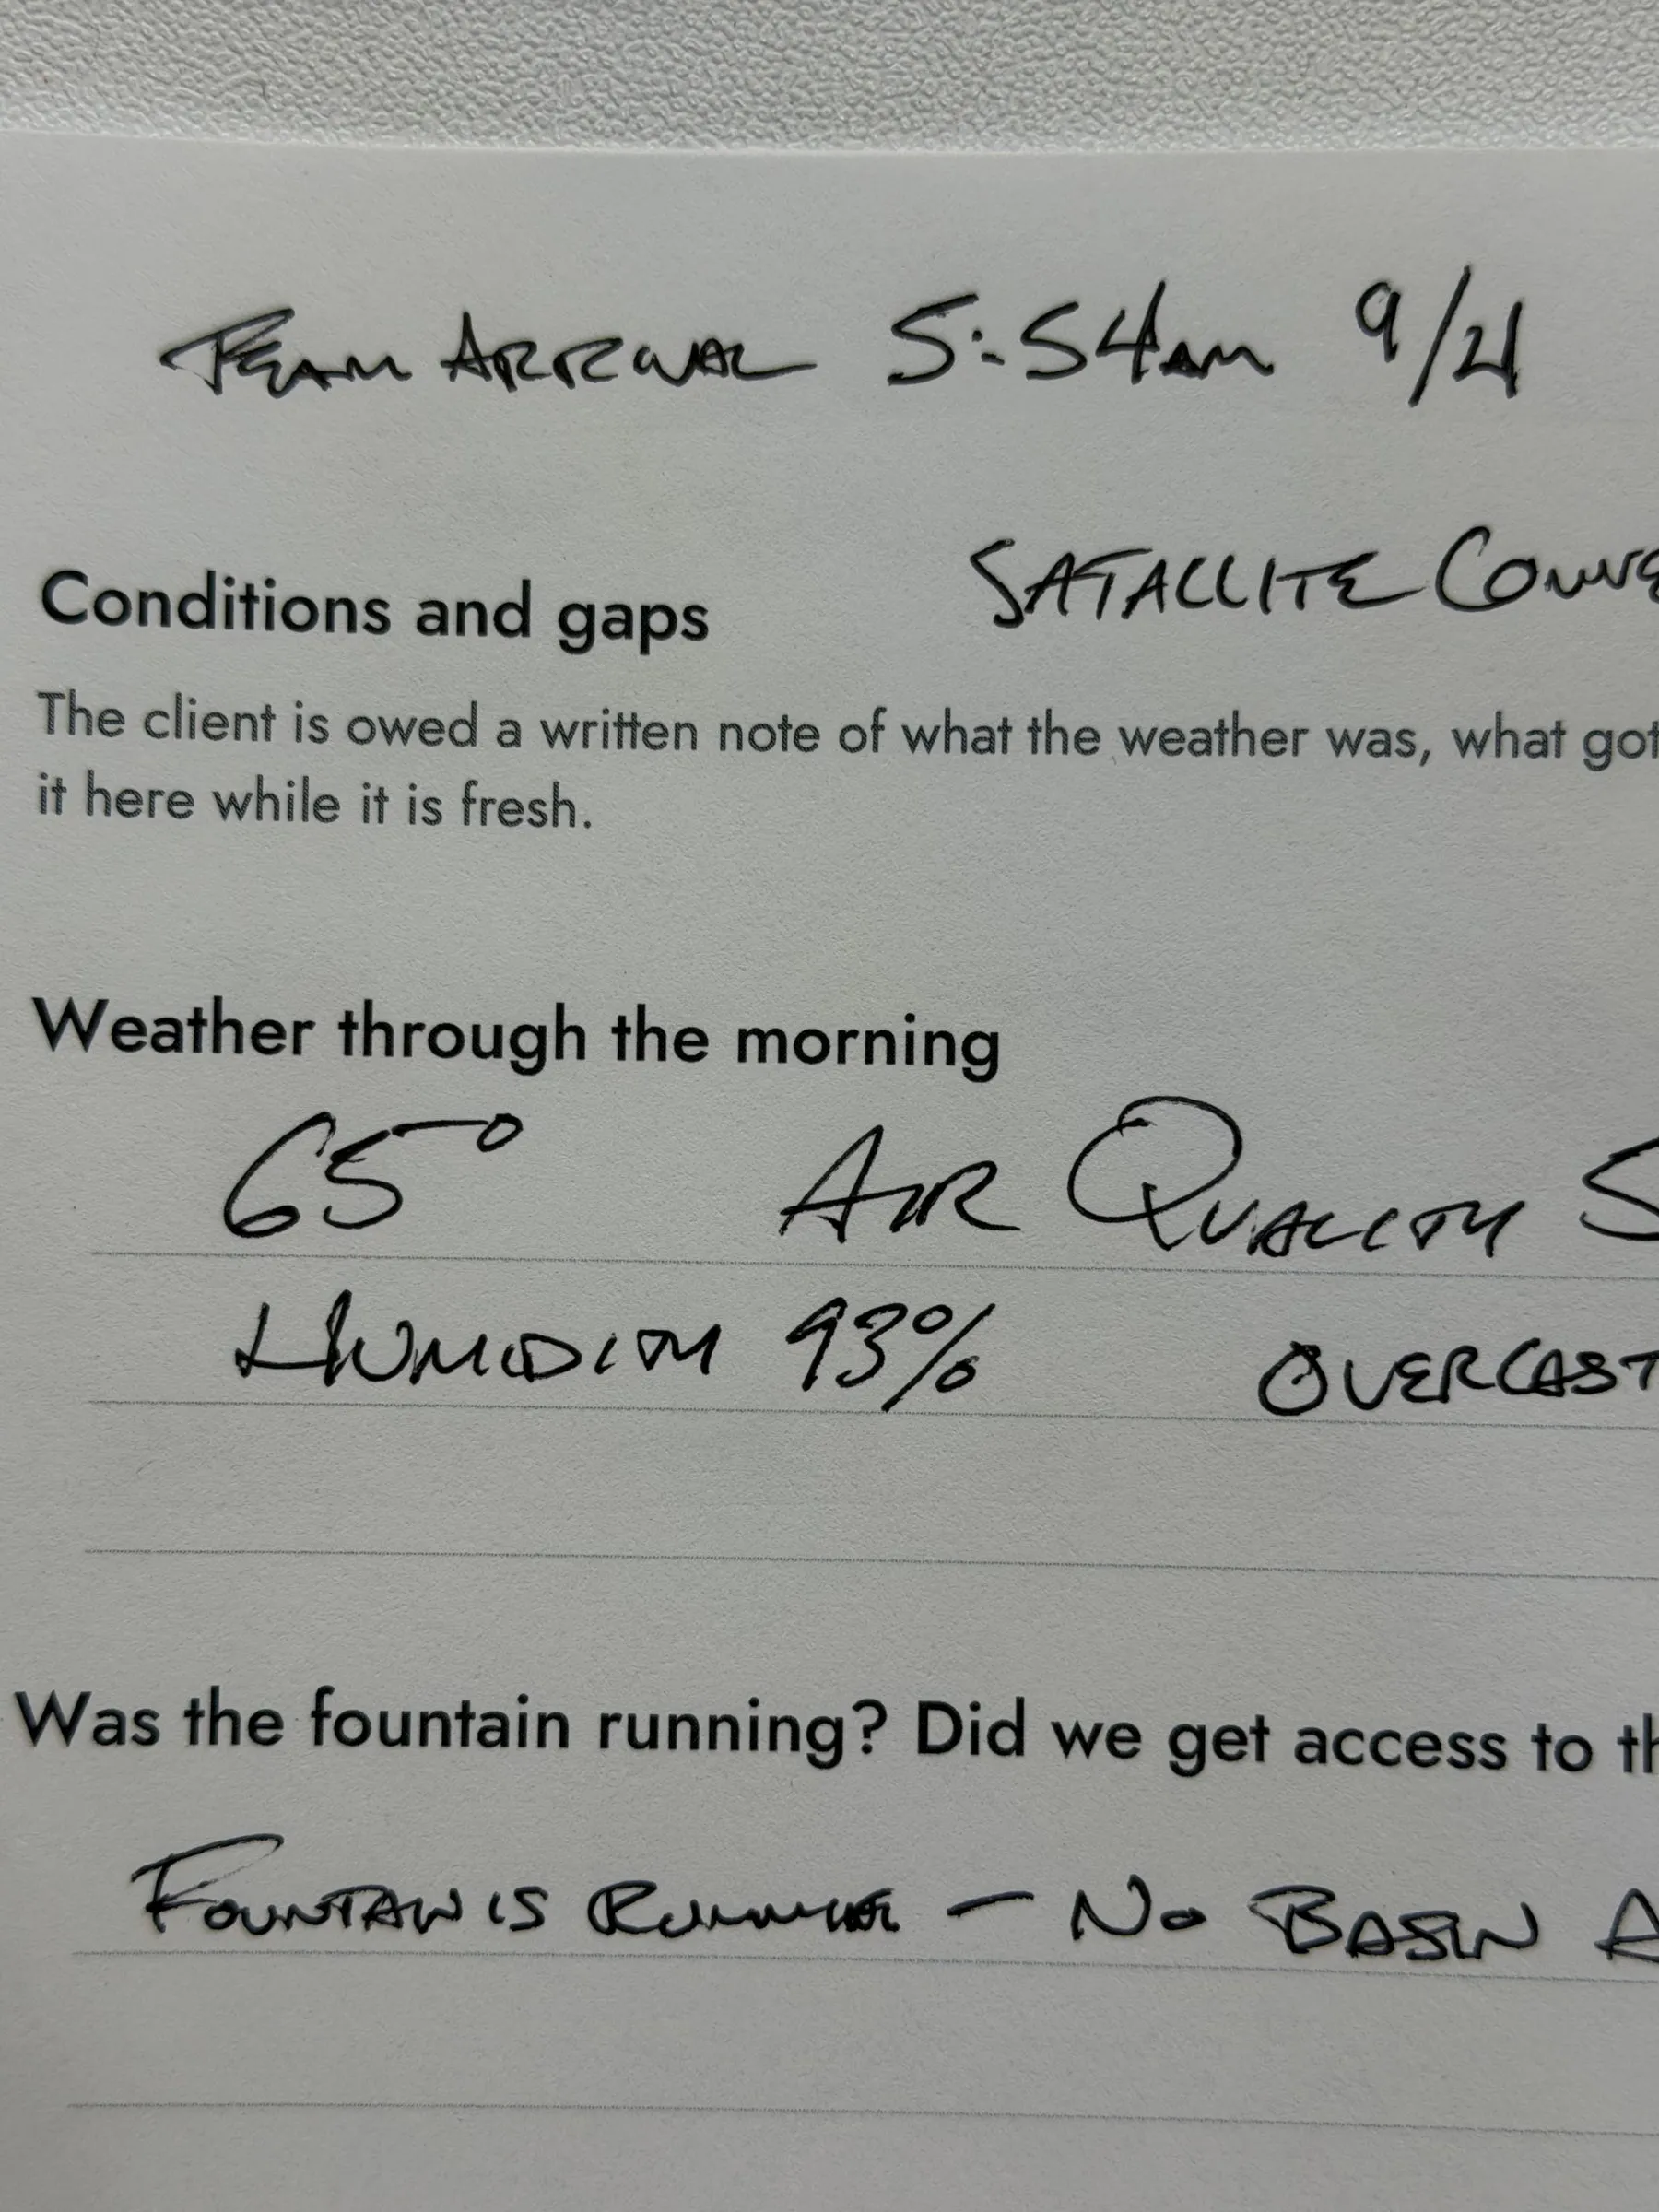 TEAM ARRIVAL 5:54am 9/21
SATALLITE CONNE
Conditions and gaps
The client is owed a written note of what the weather was, what got
it here while it is fresh.
Weather through the morning
65° AIR QUALITY 5
HUMIDITY 93% OVERCAST
Was the fountain running? Did we get access to th
FOUNTAIN IS RUNNING — NO BASIN A